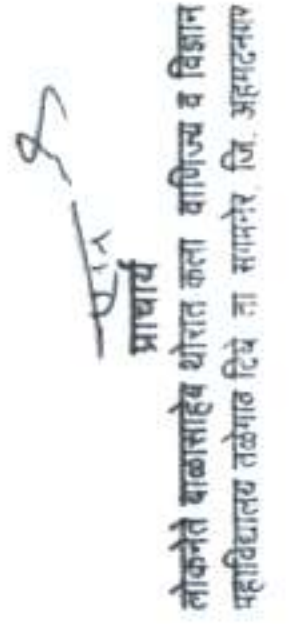 प्राचार्य
लोकनेते बाळासाहेब थोरात कला वाणिज्य व विज्ञान
महाविद्यालय तळेगाव दिघे ता संगमनेर. जि. अहमदनगर